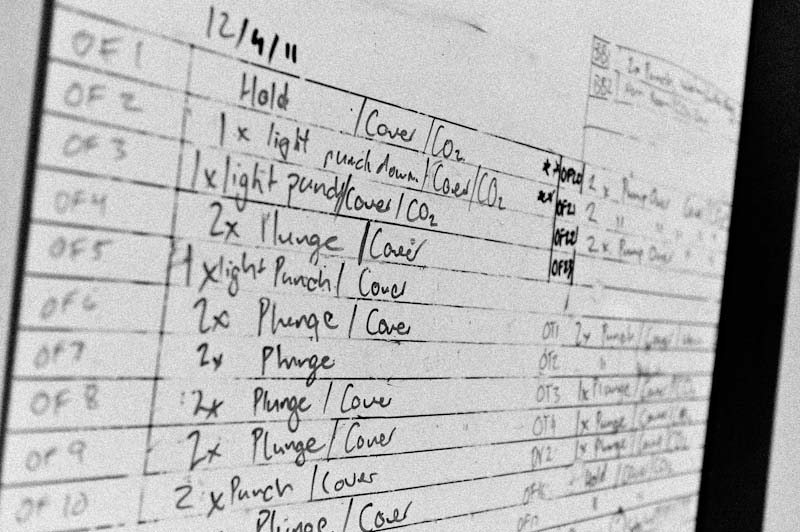 12/4/11
OF 1 Hold /Cover/CO2
OF 2 1x light punchdown/Cover/CO2
OF 3 1x light punch/Cover/CO2
OF 4 2x Plunge /Cover
OF 5 1x light Punch/Cover
OF 6 2x Plunge/Cover
OF 7 2x Plunge
OF 8 2x Plunge/Cover
OF 9 2x Plunge/Cover
OF 10 2x Punch/Cover
Plunge/Cover
BB1 2x Punch
BB2
** OF20 2 x Pump Over
** OF21 2 " "
OF22 2 x Pump Over " "
OF23
OT1 2x Punch/Cover
OT2 "
OT3 1x Plunge/Cover/CO2
OT4 1x Punge/Cover/CO2
1x Plunge/Cover/CO2
Hold/Cover/CO2